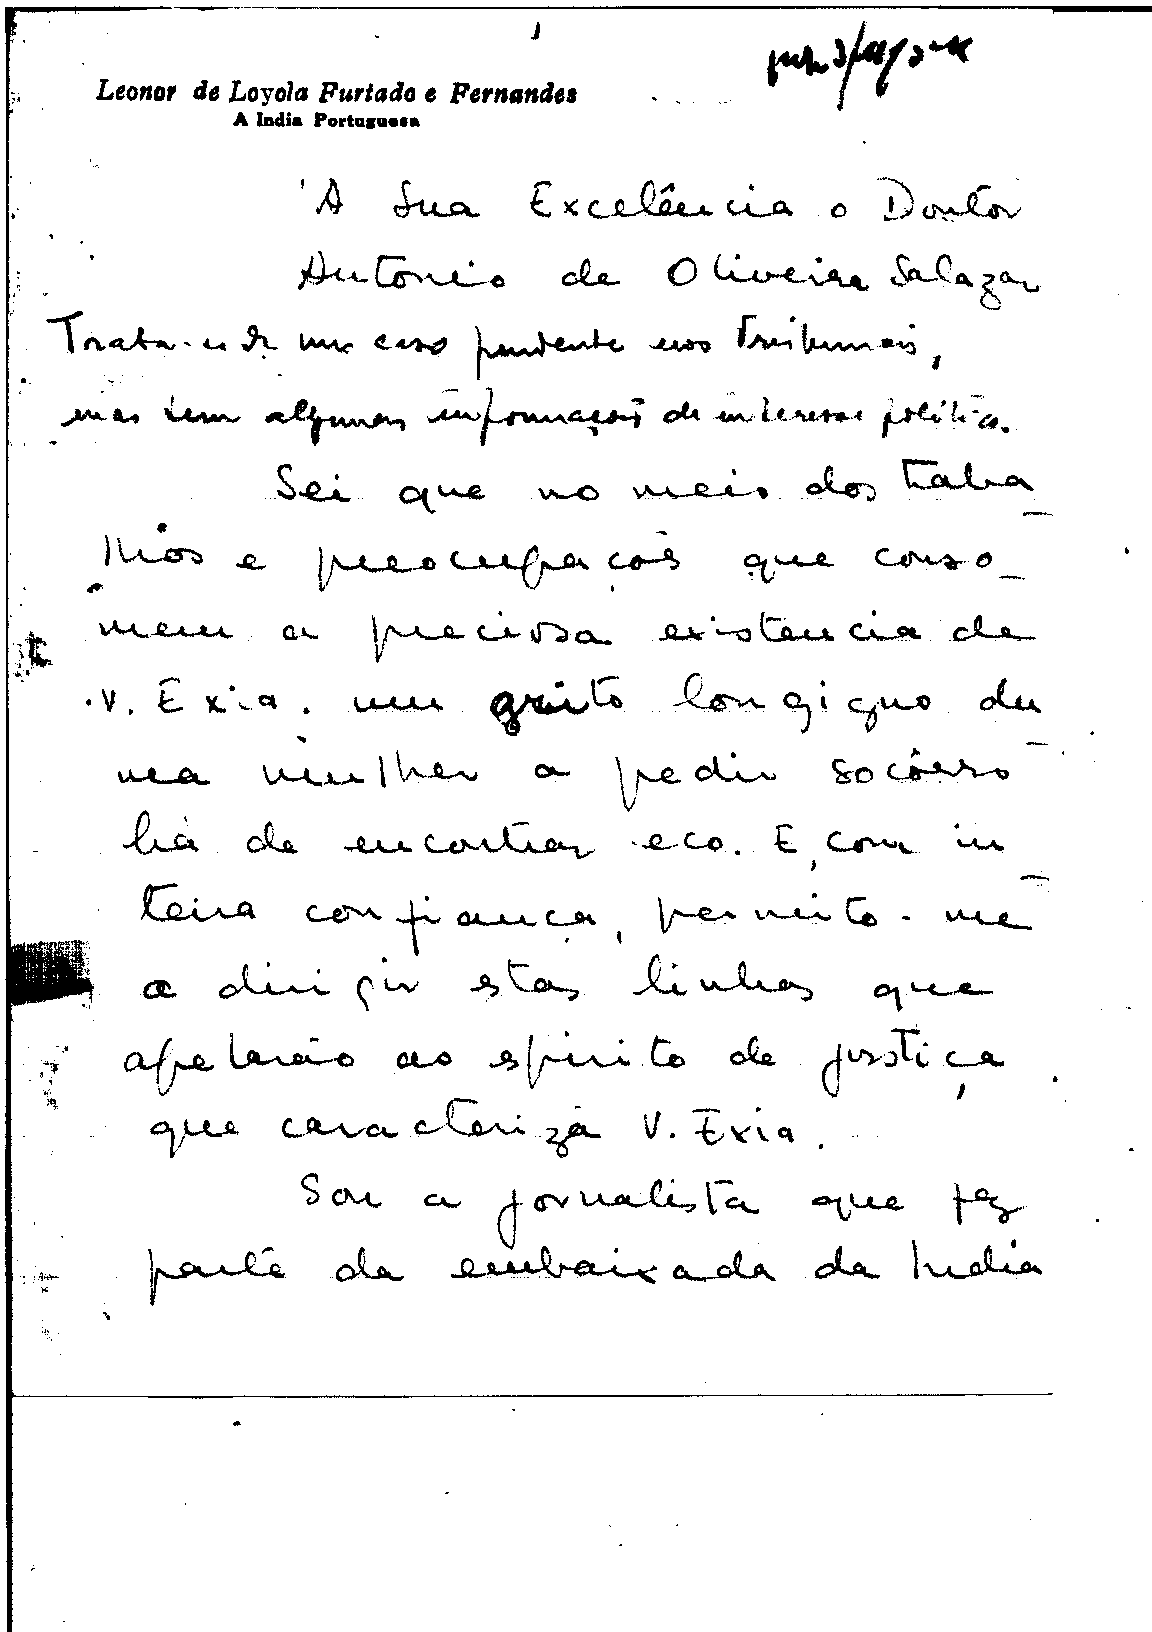 Leonor de Loyola Furtado e Fernandes
A India Portuguesa
'A Sua Excelência o Doutor
Antonio de Oliveira Salazar
Trata-se de um caso pendente nos Tribunais,
mas tem algumas informações de interesse político.
Sei que no meio dos traba
lhos e preocupações que conso_
mem a preciosa existencia de
V. Exia. um grito longiquo du
ma mulher a pedir socôrro
há de encontrar eco. E, com in
teira confiança, permito-me
a dirigir estas linhas que
apelarão ao espirito de justiça
que caracteriza V. Exia.
Sou a jornalista que fez
parte da embaixada da India